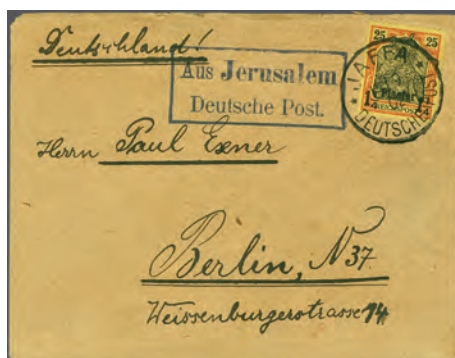 Deutschland!
Aus Jerusalem
Deutsche Post.
25 25
JAFFA
DEUTSCHE POST
Herrn Paul Exner
Berlin, N 37.
Weissenburgerstrasse 74